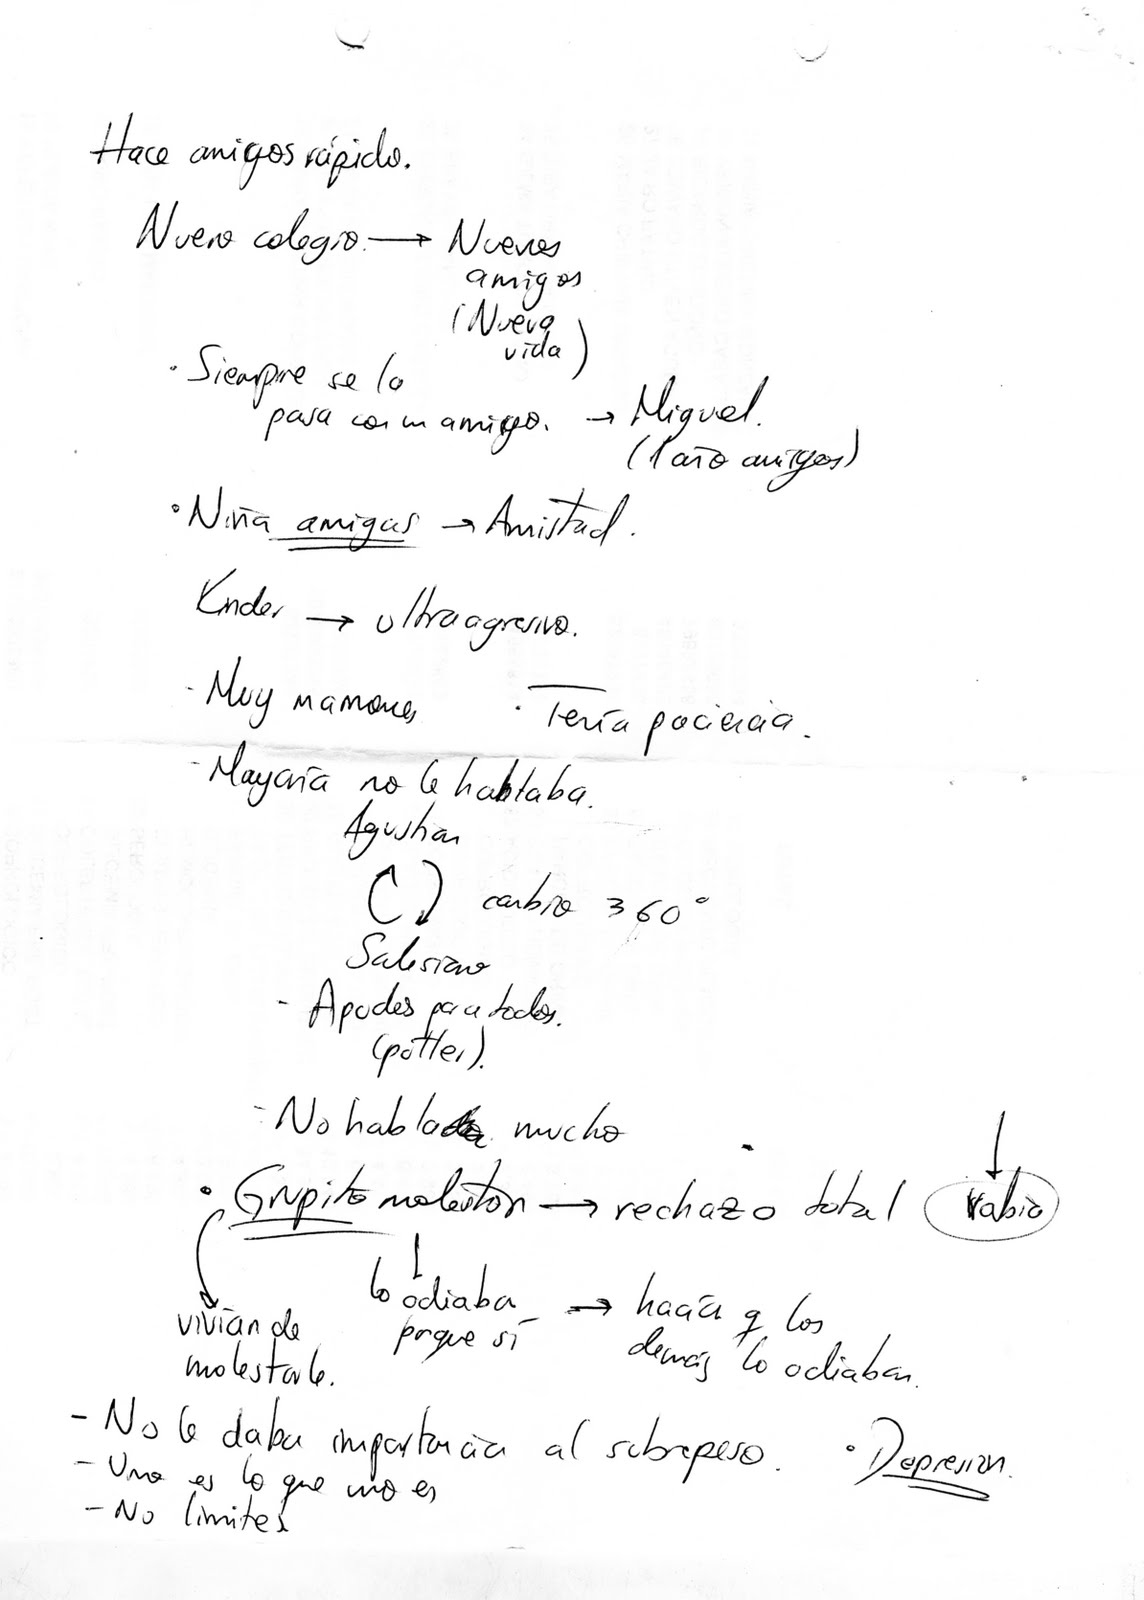 Hace amigos rápido.
Nuevo colegio. → Nuevos
amigos
(Nueva
vida)
· Siempre se lo
pasa con un amigo. → Miguel.
(1 año amigos)
· Niña amigas → Amistad.
Kinder → ultra agresivo.
- Muy mamones · Tenía paciencia.
- Mayoría no le hablaba.
Agustian
cambio 360°
Salesiano
- Apodos para todos.
(potter).
- No hablaba mucho
· Grupito molestón → rechazo total rabia
lo odiaba → hacía q los
porque sí demás lo odiaban.
vivían de
molestarle.
- No le daba importancia al sobrepeso. · Depresión.
- Uno es lo que uno es
- No límites